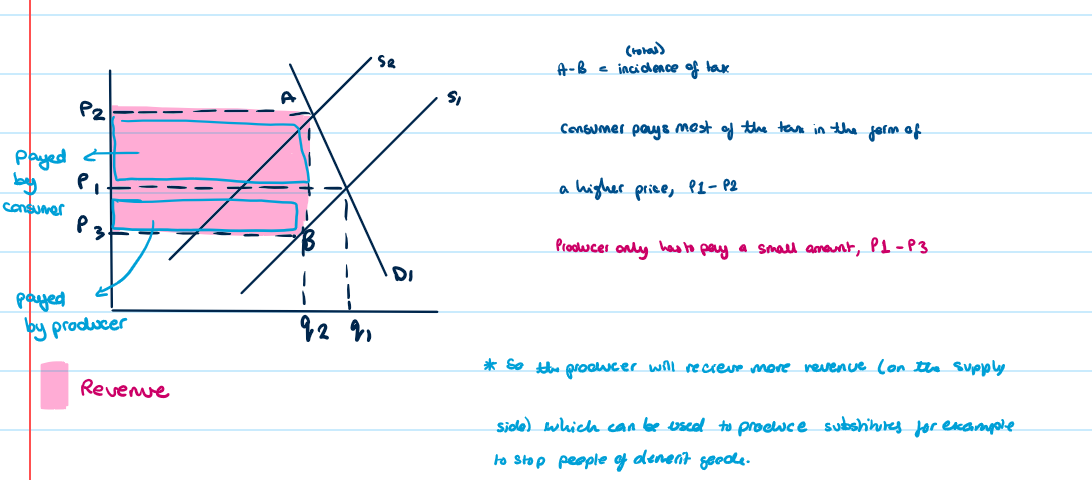 S2
S1
A
P2
payed
by
consumer
P1
P3
B
D1
payed
by producer
q2 q1
Revenue
(total)
A-B = incidence of tax
Consumer pays most of the tax in the form of
a higher price, P1-P2
Producer only has to pay a small amount, P1-P3
* So the producer will recieve more revenue (on the supply
side) which can be used to produce substitutes for example
to stop people of demerit goods.